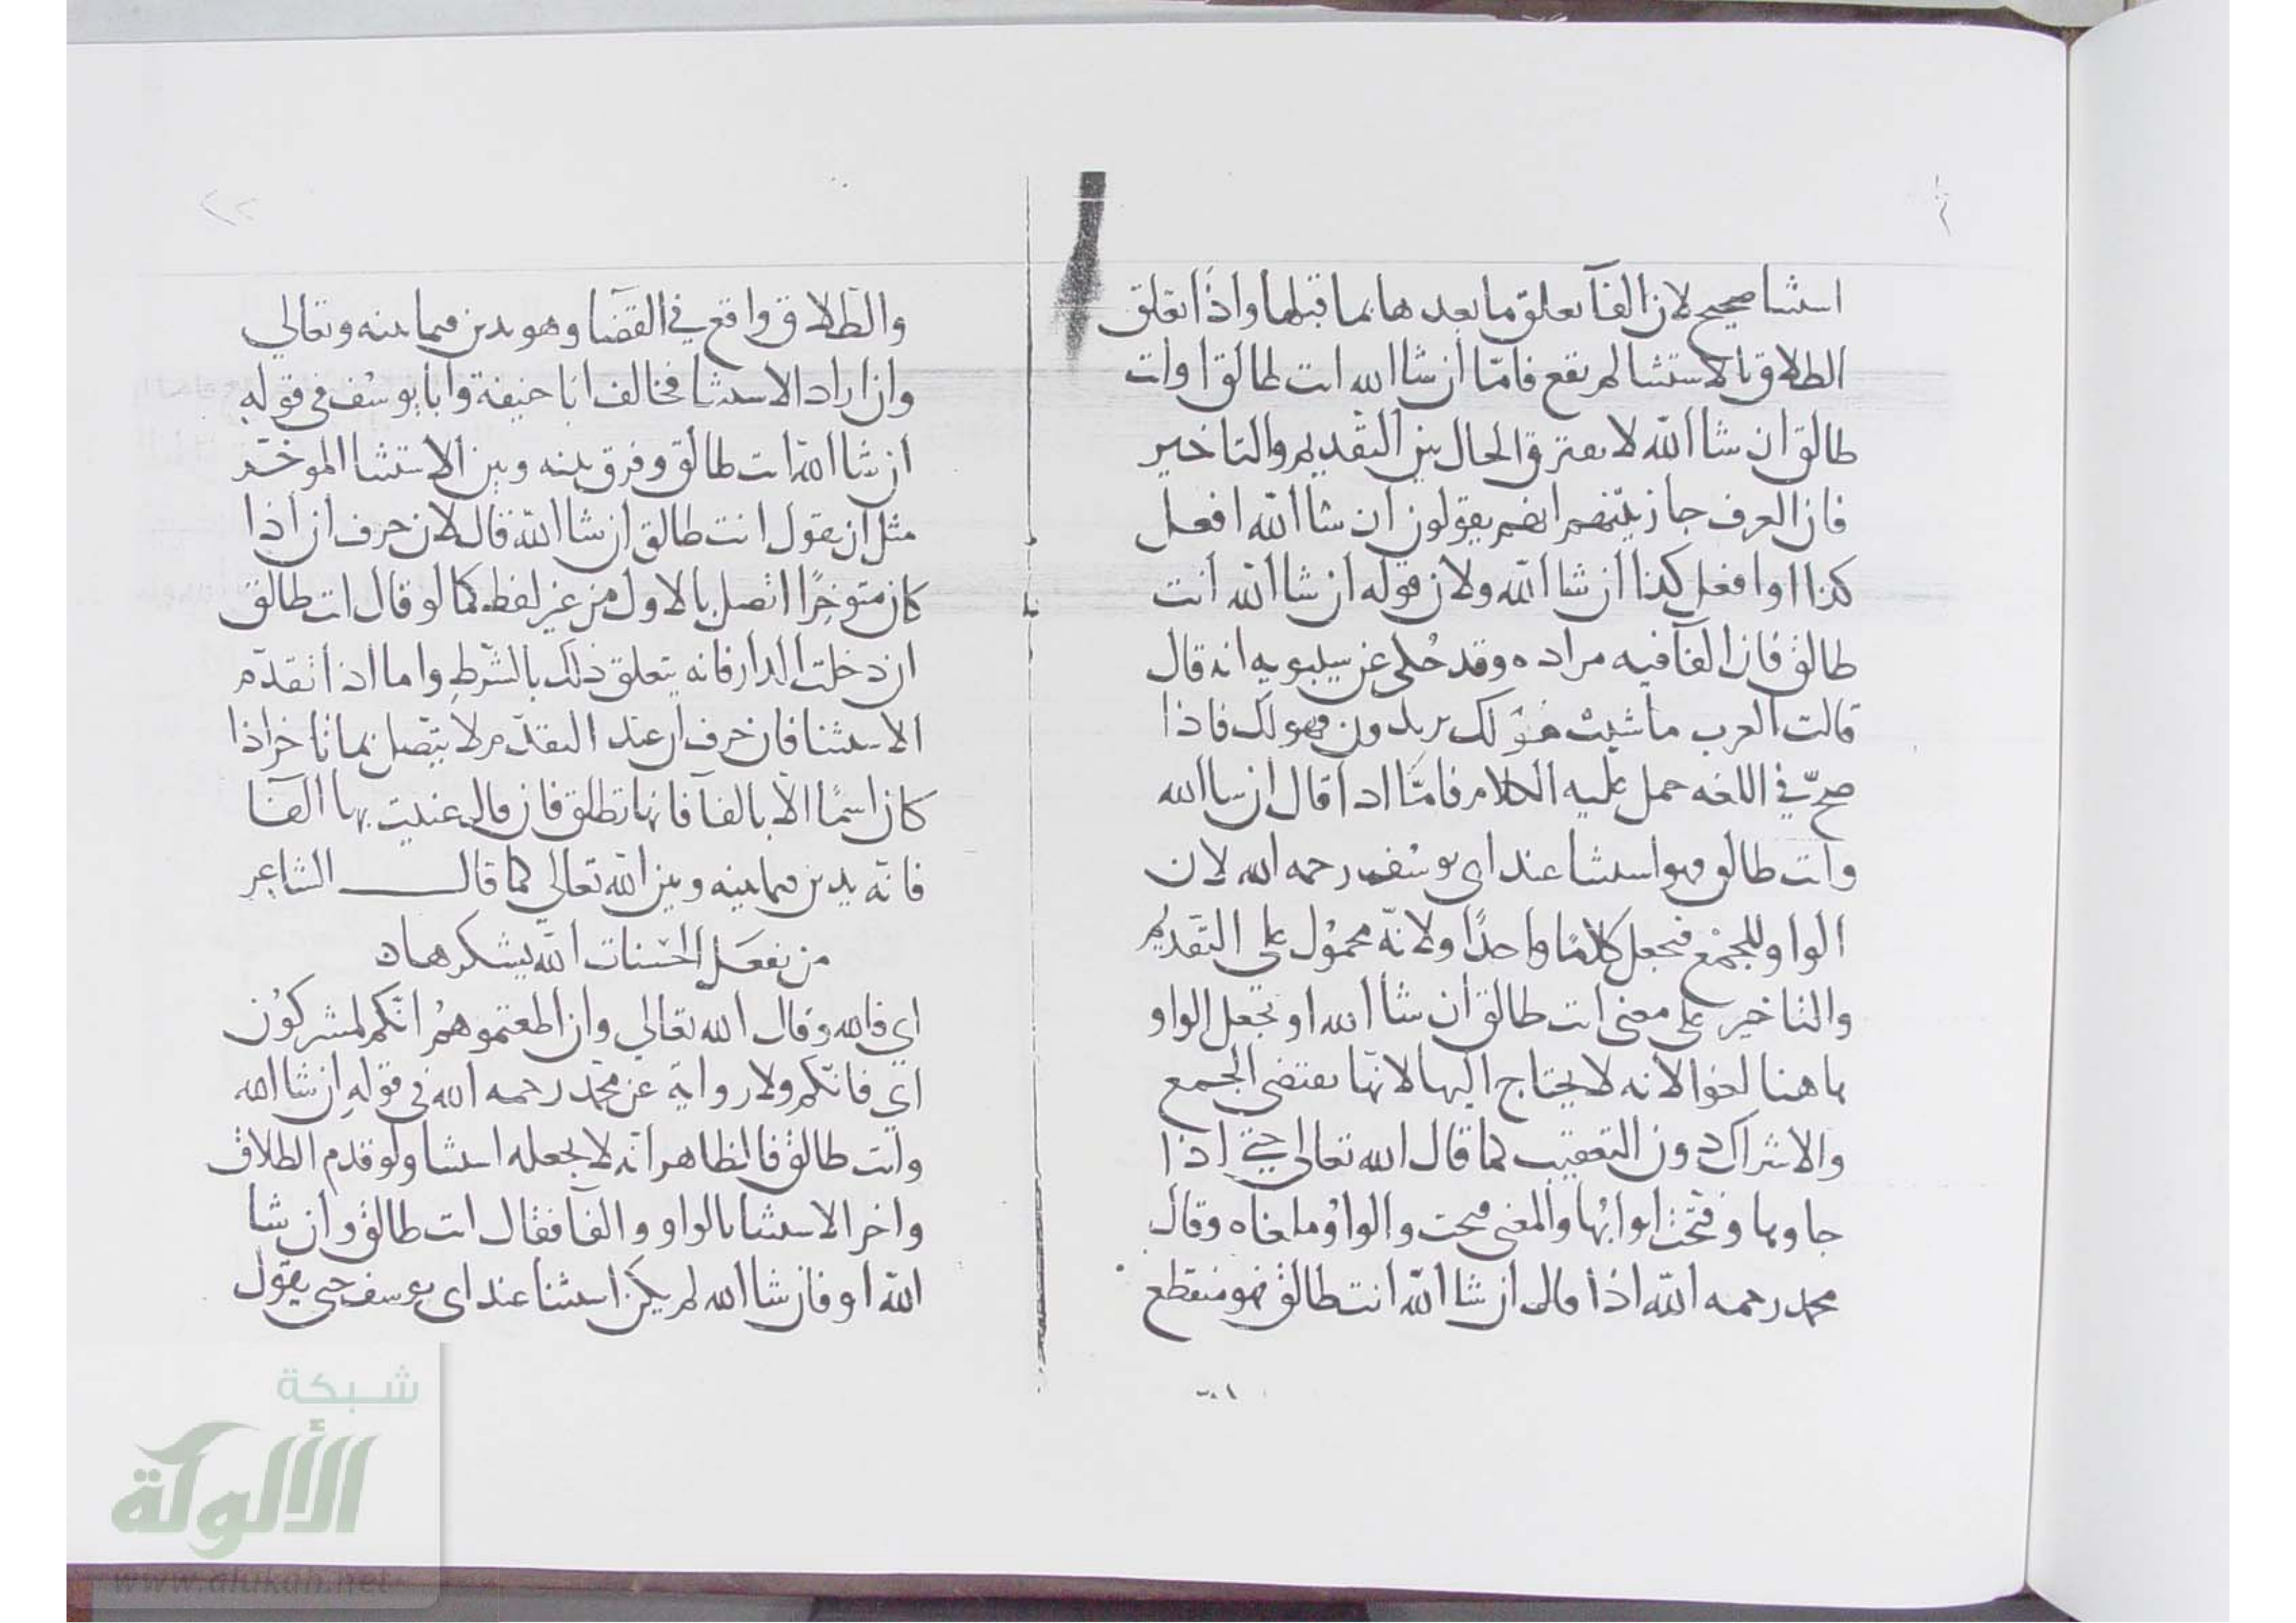 استثنا صحيح لان الفآ تعلق ما بعدها بما قبلها واذا تعلق
الطلاق بالاستثنا لم يقع فامّا ان شا الله انت طالق او انت
طالق ان شا الله لا يفترق الحال بين التقديم والتاخير
فان العرف جاز بينهم انهم يقولون ان شا الله افعل
كذا او افعل كذا ان شا الله ولان قوله ان شا الله انت
طالق فان الفآ فيه مراده وقد حُكي عن سيبويه انه قال
قالت العرب ما شيت هُوَ لك يريدون فهو لك فاذا
صحّ في اللغه حمل عليه الكلام فامّا اذا قال ان شا الله
وانت طالق فهو استثنا عند ابي يوسُف رحمه الله لان
الواو للجمْع فتجعل كلامًا واحدًا ولانّه محموُل على التقديم
والتاخير على معنى انت طالق ان شا الله او تجعل الواو
هاهنا لغوا لانه لا يحتاج اليها لانها تقتضي الجمع
والاشراك دون التعقيب كما قال الله تعالى حتى اذا
جاوها وفتحت ابوابُها والمعنى فتحت والواوُ ملغاه وقال
محمد رحمه الله اذا قال ان شا الله انت طالق فهو منقطع
والطلاق واقع في القضا وهو يدين فيما بينه وتعالي
وان اراد الاستثنا فخالف ابا حنيفة وابا يوسُف في قوله
ان شا الله انت طالق وفرق بينه وبين الاستثنا الموخّر
مثل ان يقول انت طالق ان شا الله قال لان حرف ان اذا
كان متوخرًا اتصل بالاول من غير لفظ كما لو قال انت طالق
ان دخلت الدار فانه يتعلق ذلك بالشّرطِ واما اذا تقدّم
الاستثنا فان حرف ان عند التقدّم لا يتّصل بما تاخر اذا
كان اسمًا الا بالفآ فانها تطلق فان قال عنيت بها الفا
فانّه يدين فيما بينه وبين الله تعالي كما قال الشاعر
من يفعَل الحسنات الله يشكرها
اي فالله وقال الله تعالي وان اطعتموهمُ انّكم لمشركوُن
اي فانّكم ولا رواية عن محمّد رحمه الله في قولهِ ان شا الله
وانت طالق فالظاهر انّه لا يجعله استثنا ولو قدم الطلاق
واخر الاستثنا بالواو والفآ فقال انت طالق وان شا
الله او فان شا الله لم يكن استثنا عند ابي يوسف حتى يقول
شبكة
الألوكة
www.alukah.net